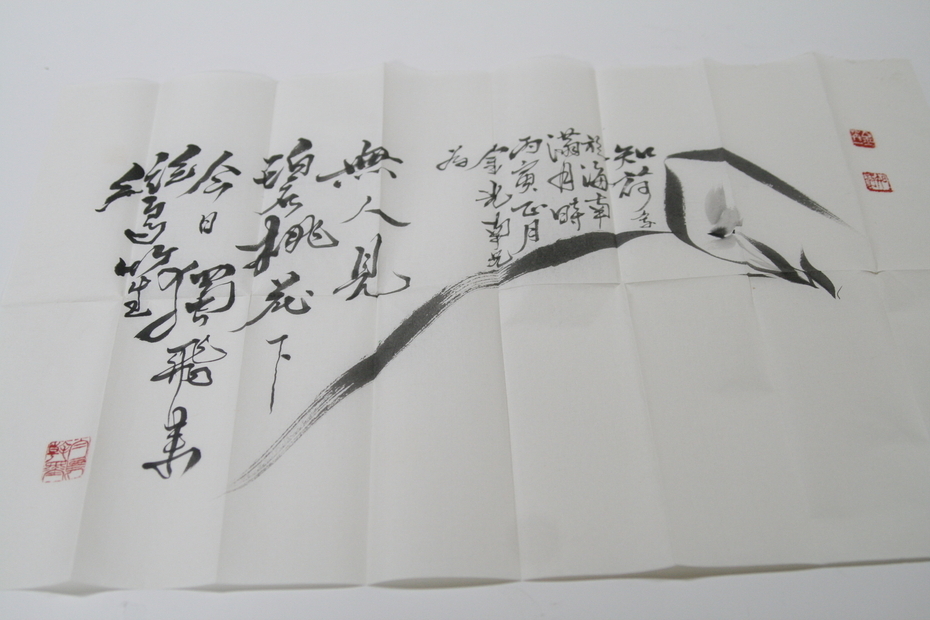 笙
今日獨飛来
碧桃花下
無人見
為
金光南兄
丙寅正月
滿月時
於海南
知訶